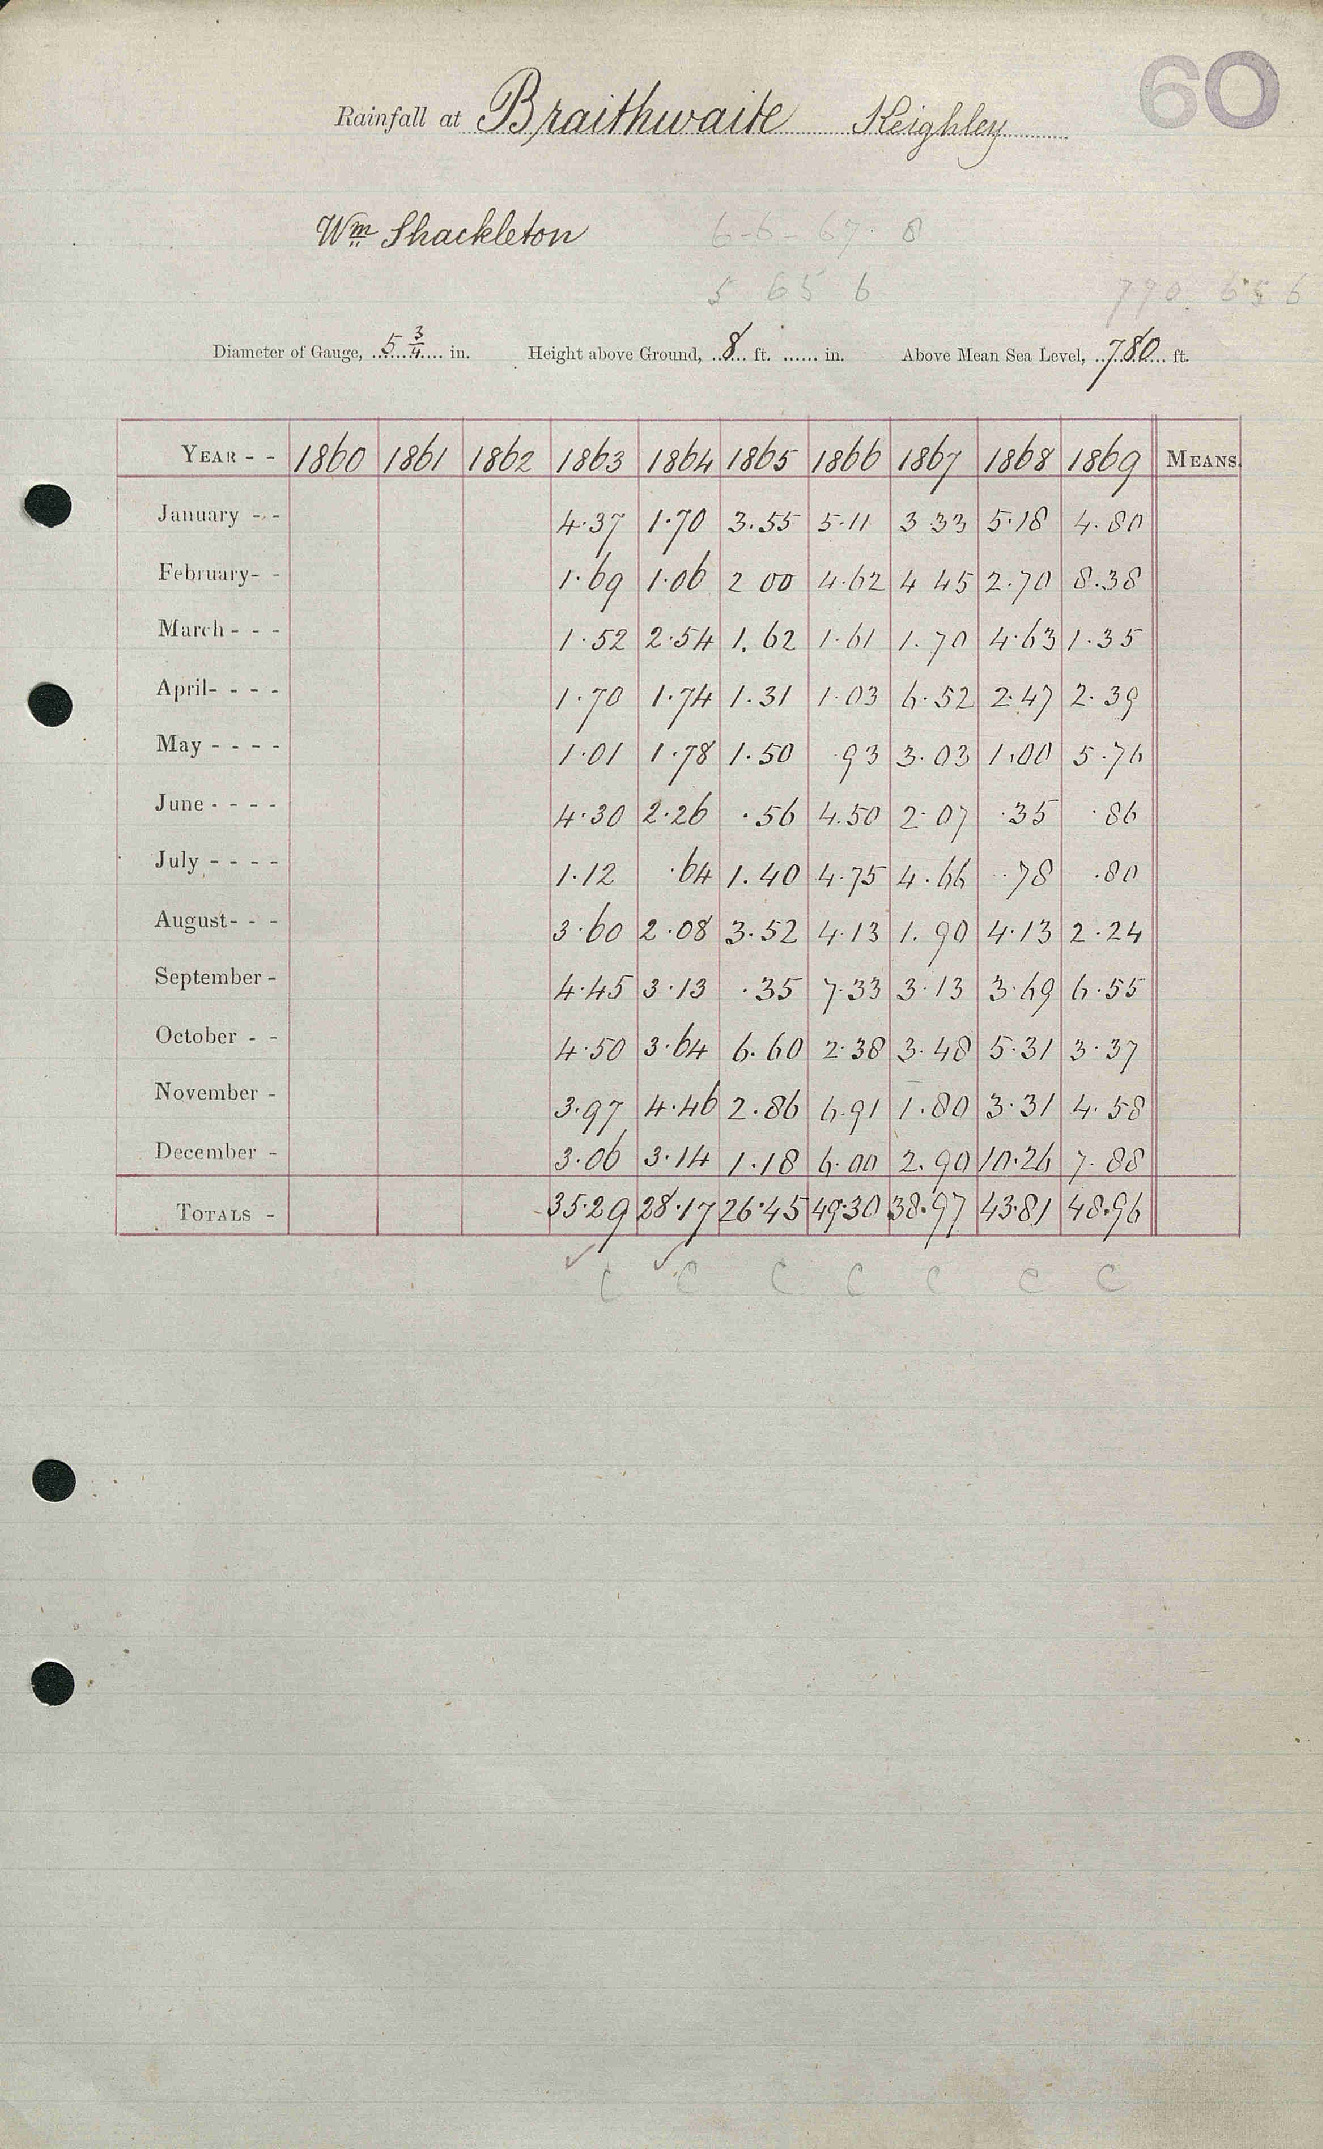 60
Rainfall at Braithwaite Keighley
Wm Shackleton 6-6 67. 8
5 65 6 790. 65 6
Diameter of Gauge, 5 3/4 in. Height above Ground, 8 ft. ...... in. Above Mean Sea Level, 780 ft.
YEAR - - 1860 1861 1862 1863 1864 1865 1866 1867 1868 1869 MEANS.
January - - 4.37 1.70 3.55 5.11 3 33 5.18 4.80
February - - 1.69 1.06 2 00 4.62 4 45 2.70 8.38
March - - - 1.52 2.54 1.62 1.61 1.70 4.63 1.35
April - - - - 1.70 1.74 1.31 1.03 6.52 2.47 2.39
May - - - - 1.01 1.78 1.50 .93 3.03 1.00 5.76
June - - - - 4.30 2.26 .56 4.50 2.07 .35 .86
July - - - - 1.12 .64 1.40 4.75 4.66 .78 .80
August - - - 3.60 2.08 3.52 4.13 1.90 4.13 2.24
September - 4.45 3.13 .35 7.33 3.13 3.69 6.55
October - - 4.50 3.64 6.60 2.38 3.48 5.31 3.37
November - 3.97 4.46 2.86 6.91 1.80 3.31 4.58
December - 3.06 3.14 1.18 6.00 2.90 10.26 7.88
TOTALS - 35.29 28.17 26.45 49.30 38.97 43.81 48.96
C C C C C C C